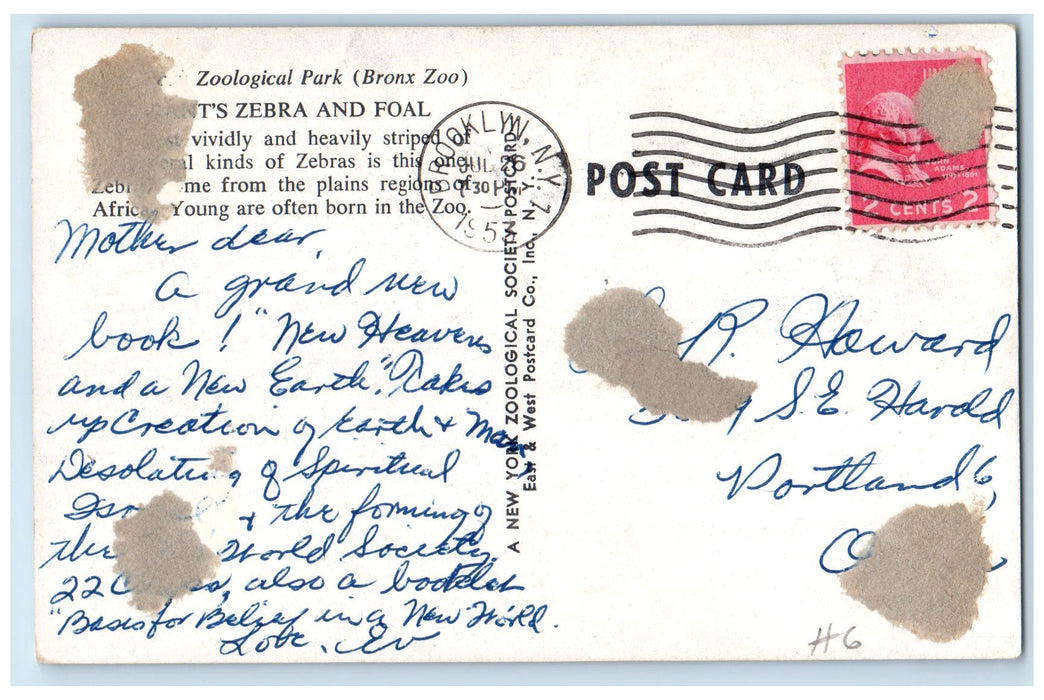 Zoological Park (Bronx Zoo)
ANT'S ZEBRA AND FOAL
st vividly and heavily striped of
ral kinds of Zebras is this one.
Zeb me from the plains regions of
Africa. Young are often born in the Zoo.
Mother dear,
A grand new
book! "New Heavens
and a New Earth." Takes
up Creation of Earth & Man,
Desolating of Spiritual
& the forming of
the World Society.
22 also a booklet
"Basis for Belief in a New World.
Love, Ev
A NEW YORK ZOOLOGICAL SOCIETY POSTCARD
East & West Postcard Co., Inc., N. Y. 7
BROOKLYN, N.Y.
JUL 26
30 P
195
POST CARD
ADAMS
1797-1801
2 CENTS 2
R. Howard
S.E. Harold
Portland 6,
O
#6